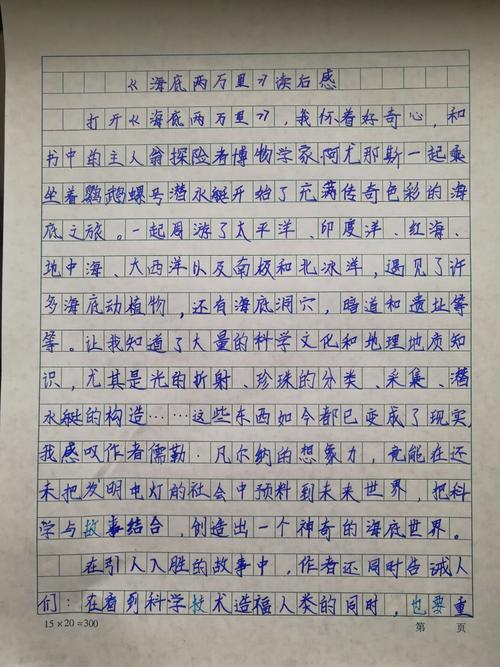 《海底两万里》读后感
打开《海底两万里》，我怀着好奇心，和
书中的主人翁探险者博物学家阿尤那斯一起乘
坐着鹦鹉螺号潜水艇开始了充满传奇色彩的海
底之旅。一起周游了太平洋、印度洋、红海、
地中海、大西洋以及南极和北冰洋，遇见了许
多海底动植物，还有海底洞穴，暗道和遗址等
等。让我知道了大量的科学文化和地理地质知
识，尤其是光的折射、珍珠的分类、采集、潜
水艇的构造……这些东西如今都已变成了现实，
我感叹作者儒勒·凡尔纳的想象力，竟能在还
未把发明电灯的社会中预料到未来世界，把科
学与故事结合，创造出一个神奇的海底世界。
在引人入胜的故事中，作者还同时告诫人
们：在看到科学技术造福人类的同时，也要重
15×20=300 第 页